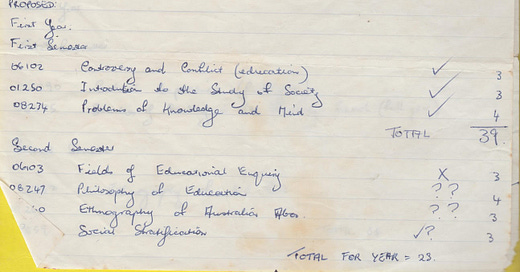 PROPOSED:
First Year.
First Semester
06102 Controversy and Conflict (education) ✓ 3
01250 Introdution to the Study of Society ✓ 3
08274 Problems of Knowledge and Mind ✓ 4
TOTAL 39.
Second Semester
06103 Fields of Educational Enquiry X 3
08247 Philosophy of Education ?? 4
40 Ethnography of Australian Abor. ?? 3
Social Stratification ✓? 3
TOTAL FOR YEAR = 23.